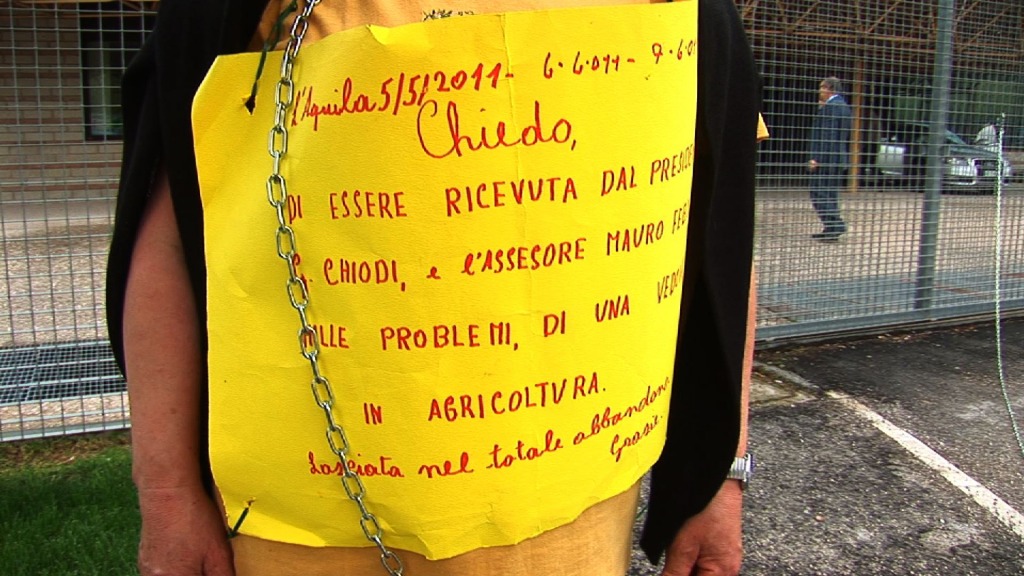 l'Aquila 5/5/2011- 6.6.011- 7.6.0
Chiedo,
DI ESSERE RICEVUTA DAL PRESIDE
G. CHIODI, e l'ASSESORE MAURO FEB
MILLE PROBLEMI, DI UNA VEDO
IN AGRICOLTVRA.
Lasciata nel totale abbandono.
Grazie.